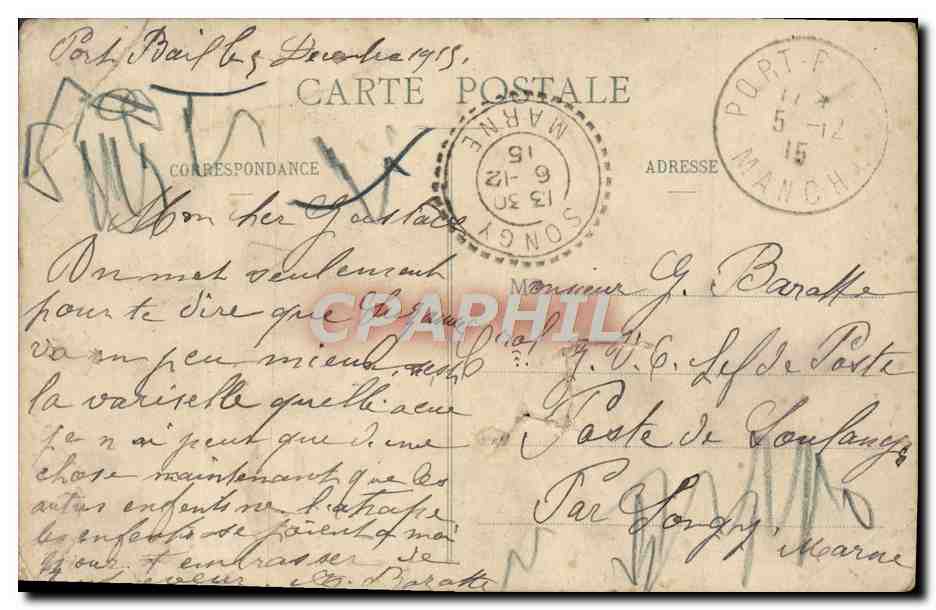 Port Bail le 5 Decembre 1915.
CARTE POSTALE
CORRESPONDANCE
ADRESSE
PORT-B
5 -12
15
MANCH
SONGY
13 30
6 -12
15
MARNE
Mon cher Gustave
Un mot seulement
pour te dire que
va un peu mieux
la variselle quelle a eue
je n ai peur que d une
chose maintenant que les
autres enfents ne l atrape
les enfents se
pour t embrasser de
coeur Baratte
Monsieur G. Baratte
G. V. C. Chef de Poste
Poste de Soulanges
Par Songy
Marne
CPAPHIL